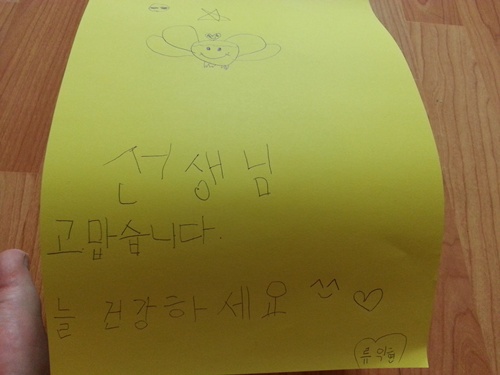 선생님
고맙습니다.
늘 건강하세요 ^^ ♡